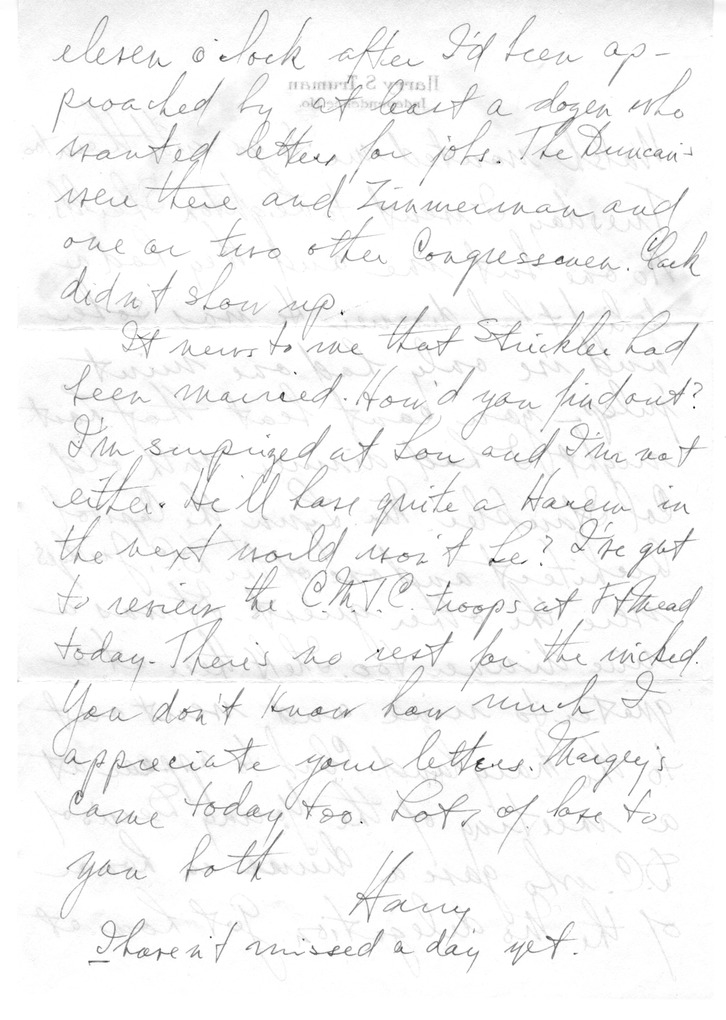 eleven o'clock after I'd been ap-
proached by at least a dozen who
wanted letters for jobs. The Duncans
were there and Zimmerman and
one or two other Congressmen. Clark
didn't show up.
It news to me that Strickler had
been married. How'd you find out?
I'm surprized at Lou and I'm not
either. He'll have quite a Harem in
the next world won't he? I've got
to review the C.M.T.C. troops at Ft Mead
today. There's no rest for the wicked.
You don't know how much I
appreciate your letters. Margey's
came today too. Lots of love to
you both
Harry
I haven't missed a day yet.
Harry S. Truman
Independence, Mo.